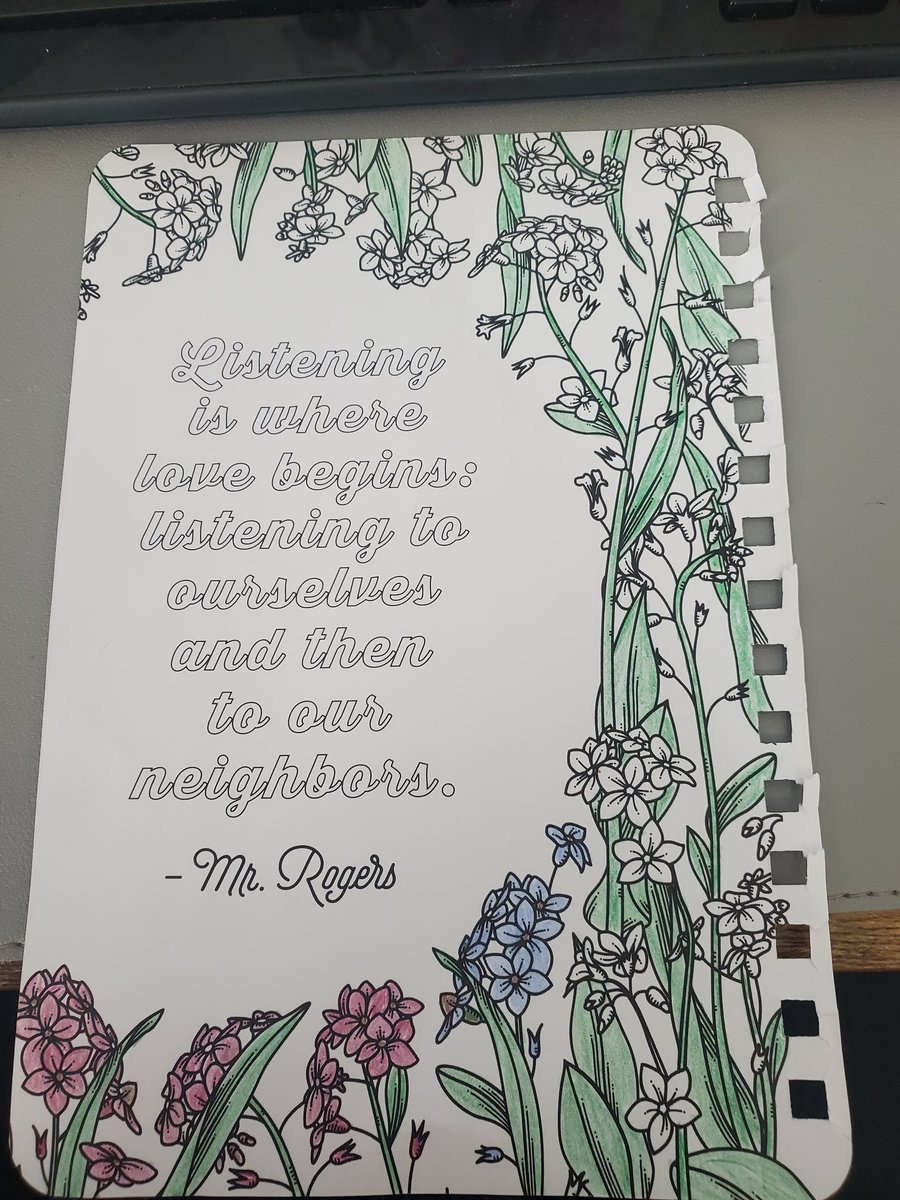 Listening
is where
love begins:
listening to
ourselves
and then
to our
neighbors.
- Mr. Rogers